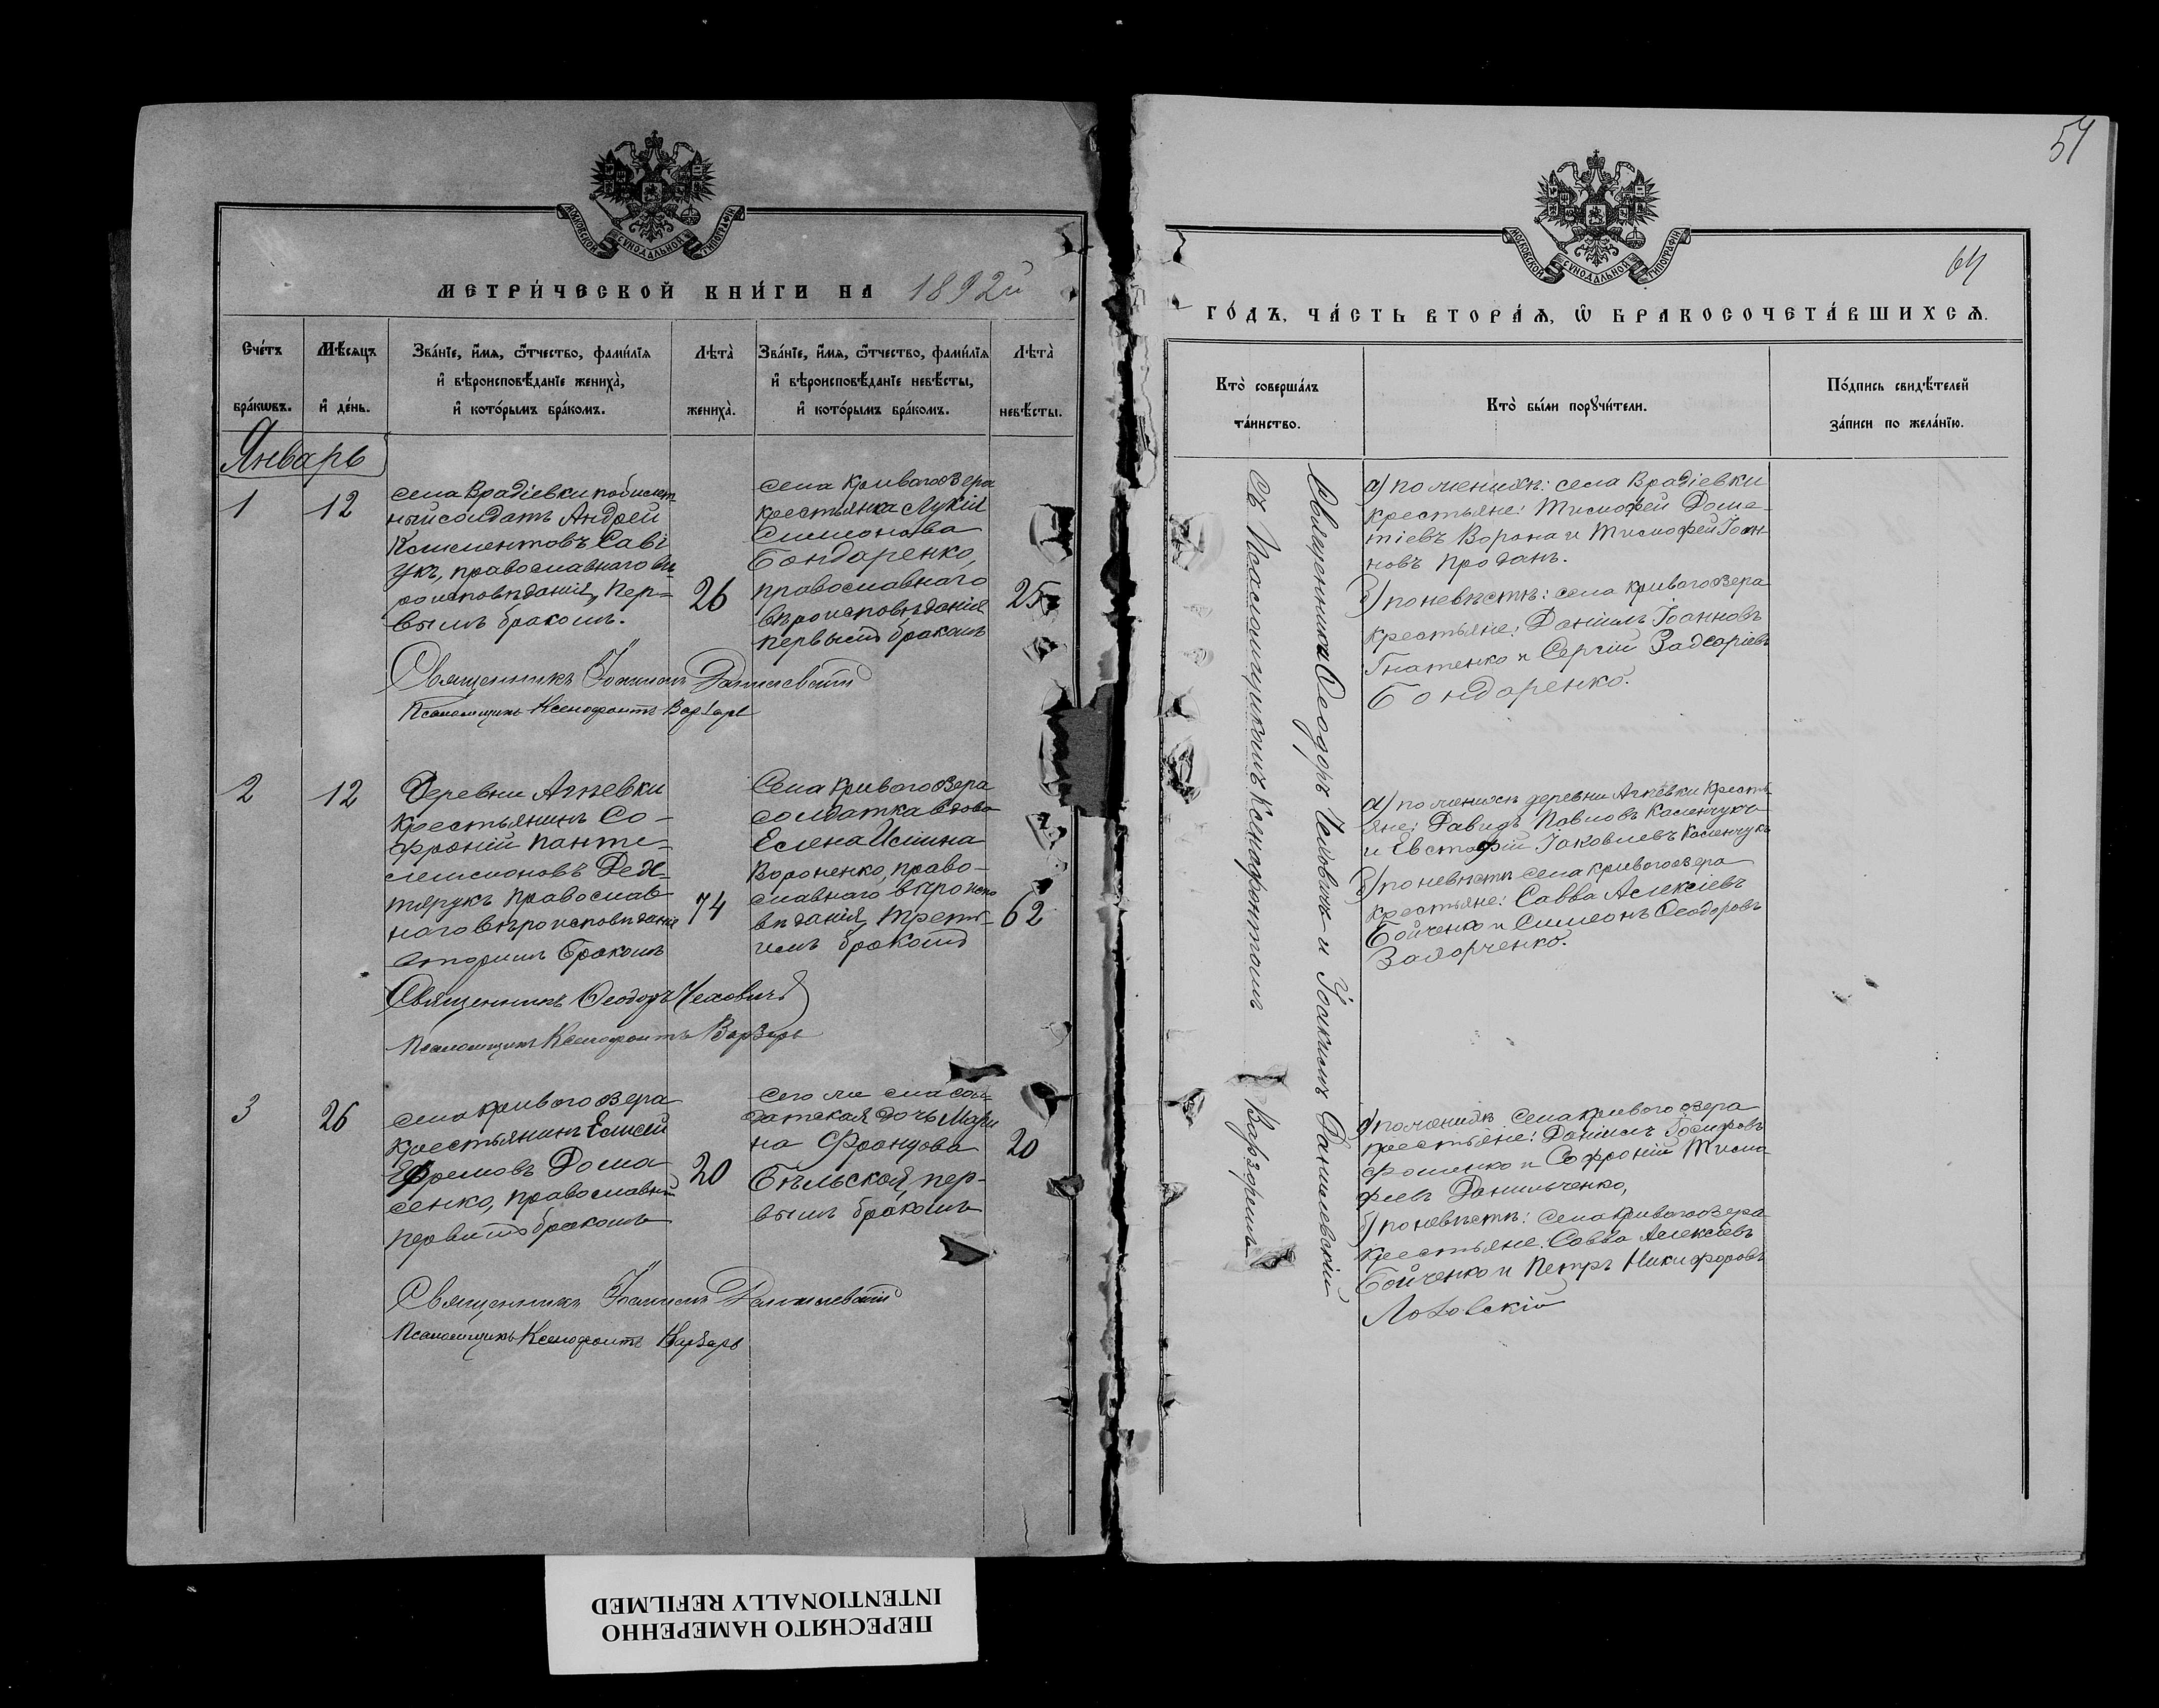 МОСКОВСКОЙ СУНОДАЛЬНОЙ ТИПОГРАФІИ
МЕТРИ́ЧЕСКОЙ КНИ́ГИ НА 1892й
Сче́тъ бра́кѡвъ.
Мѣ́сяцъ и҆ де́нь.
Зва́нїе, и҆́мѧ, ѻ҆́тчество, фами́лїѧ
и҆ вѣроисповѣ́данїе жениха̀,
и҆ кото́рымъ бра́комъ.
Лѣта̀ жениха̀.
Зва́нїе, и҆́мѧ, ѻ҆́тчество, фами́лїѧ
и҆ вѣроисповѣ́данїе невѣ́сты,
и҆ кото́рымъ бра́комъ.
Лѣта̀ невѣ́сты.
Январь
1
12
села Врадіевки побилет
ный солдатъ Андрей
Климентовъ Саві
укъ, православнаго вѣ
роисповѣданія, пер=
вымъ бракомъ.
26
села Кривого озера
крестьянка Лукія
Симионова
Бондаренко,
православнаго
вѣроисповѣданія
первымъ бракомъ
25
Священникъ Іоакимъ Данилевскій
Псаломщикъ Ксенофонтъ Варзарь
2
12
Деревни Агнѣевки
Крестьянинъ Со-
фроній Панте-
леимоновъ Дех-
тярукъ православ
наго вѣроисповѣданія
вторымъ бракомъ
74
Села Кривого озера
солдатка вдова
Елена
Вороненко, право-
славнаго вѣроиспо
вѣданія, треть-
имъ бракомъ
62
Священникъ Ѳеодоръ Чехович
Псаломщикъ Ксенофонтъ Варзарь
3
26
села Кривого озера
Крестьянинъ Елисей
Ефремовъ Дома
сенко, православный
первымъ бракомъ
20
сего же села сол
датская дочь Мари
на Францова
Бѣльской, пер-
вымъ бракомъ
20
Священникъ Іоакимъ Данилевскій
Псаломщикъ Ксенофонтъ Варзарь
54
МОСКОВСКОЙ СУНОДАЛЬНОЙ ТИПОГРАФІИ
64
ГО́ДЪ, ЧА́СТЬ ВТОРА́Ѧ, Ѽ БРАКОСОЧЕТА́ВШИХСѦ.
Кто̀ соверша́лъ
та́инство.
Кто̀ бы́ли порꙋчи́тели.
По́дпись свидѣ́телей
за́писи по жела́нїю.
Священники Ѳеодоръ Чеховичъ и Іоакимъ Данилевскій
съ Псаломщикомъ Ксенофонтомъ Варзаремъ
а) по женихѣ: села Врадіевки
крестьяне: Тимофей Доме-
тіевъ Ворона и Тимофей Іоан-
новъ Проданъ.
б) по невѣстѣ: села Кривого озера
крестьяне: Даніилъ Іоанновъ
Гнатенко и Сергій
Бондаренко.
а) по женихѣ деревни Агнѣевки Кресть
яне: Давидъ Павловъ Каленчукъ
и Евстафій Іаковлевъ Каленчукъ
б) по невѣсти села Кривого озера
крестьяне: Савва Алексіевъ
Бойченко и Симеонъ Ѳеодоровъ
а) по женихѣ села Кривого озера
крестьяне: Даніилъ
Фоменко и Софроній Тимо
феевъ Данильченко,
б) по невѣсти: села Кривого озера
крестьяне: Савва Алексіевъ
Бойченко и Петръ Никифоровъ
ПЕРЕСНЯТО НАМЕРЕННО
INTENTIONALLY REFILMED